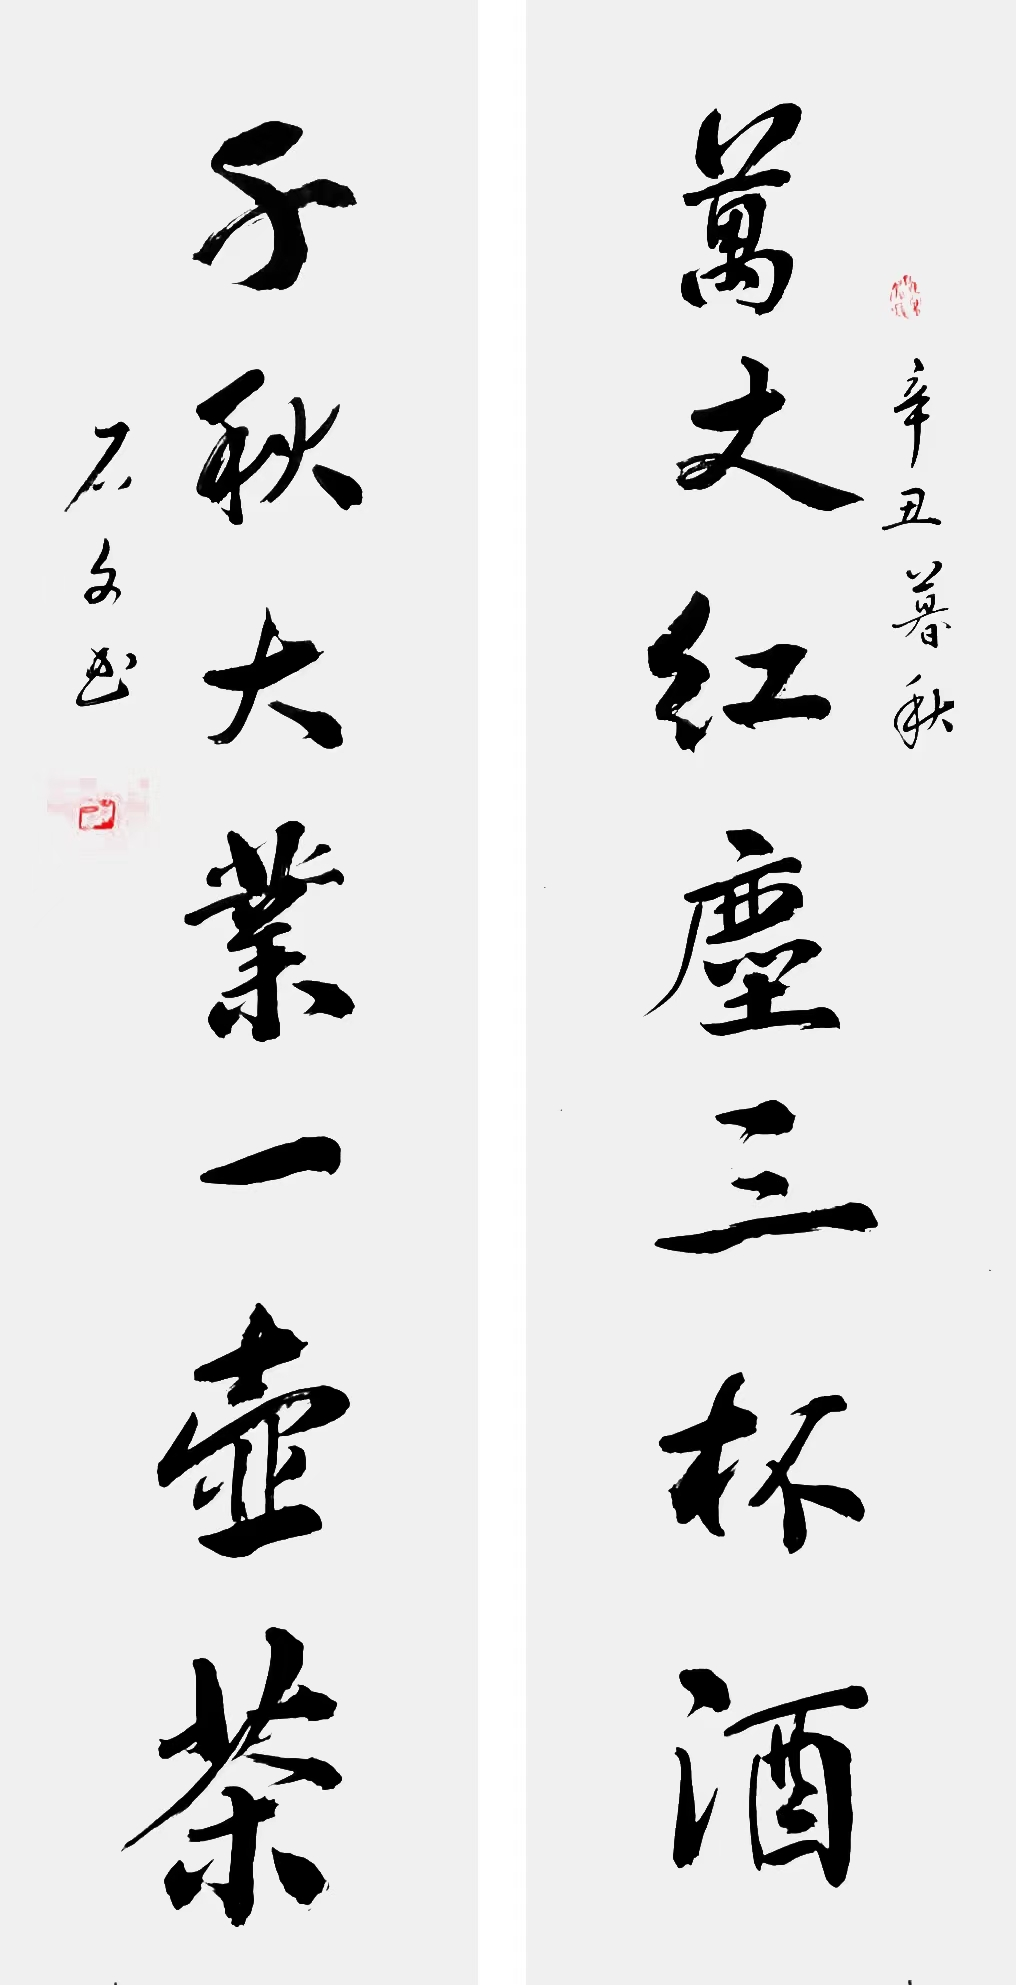 辛丑暮秋
萬丈红塵三杯酒
千秋大業一壺茶
石文